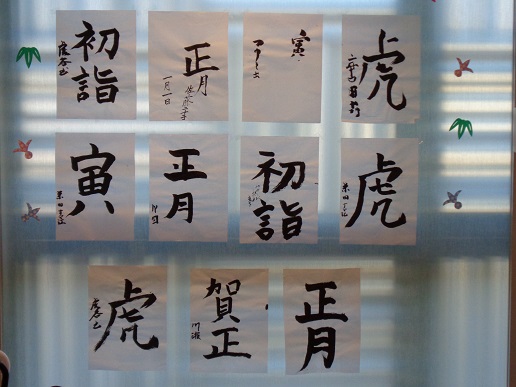 初詣
正月
一月一日
寅
虎
寅
正月
初詣
虎
虎
賀正
川瀬
正月